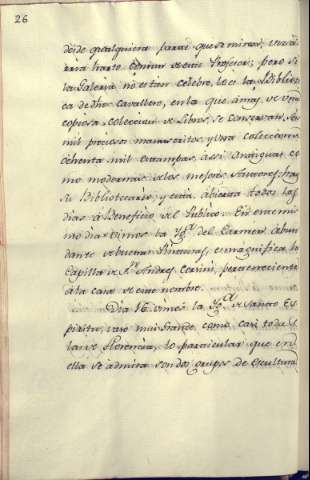 26
desde qualquiera parte que se miran, era
harto de este Profesor; pero si
la Galeria no es tan celebre, lo es la Biblio
ca de dho Cavallero, en la que á mas de una
copiosa coleccion de Libros, se conservan seis
mil preciosos manuscritos, y una coleccion de
ochenta mil estampas, assi antiguas co
mo modernas de los mejores Autores, hay
su Bibliotecario, y está abierta todos los
dias á Beneficio del Publico. En este mis
mo dia vimos la Ygª del Carmen abun
dante de buenas Pinturas, y magnifica la
Capilla de Sn Andres Corsini, perteneciente
á la casa de este nombre.
Dia 16 vimos la Ygª de Santo Es
piritu, vaso muy grande, como casi todas
las de Florencia, lo particular que en
ella se admira son dos grupos de Escultura